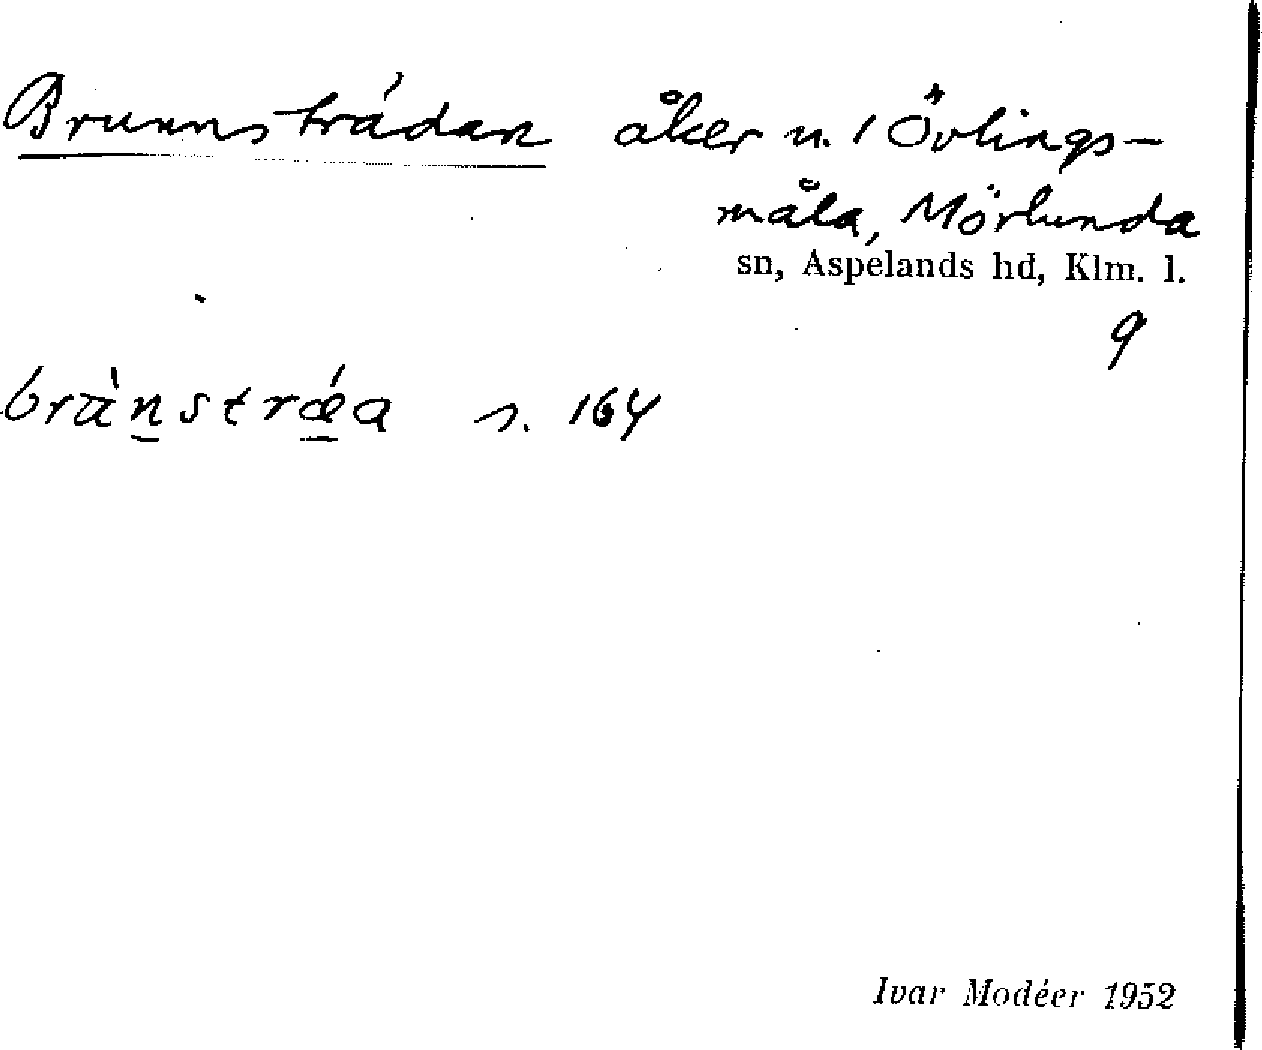 Brunnsträdan åker n. 1 Övlings-
måla, Mörlunda
sn, Aspelands hd, Klm. l.
9
s. 164
Ivar Modéer 1952